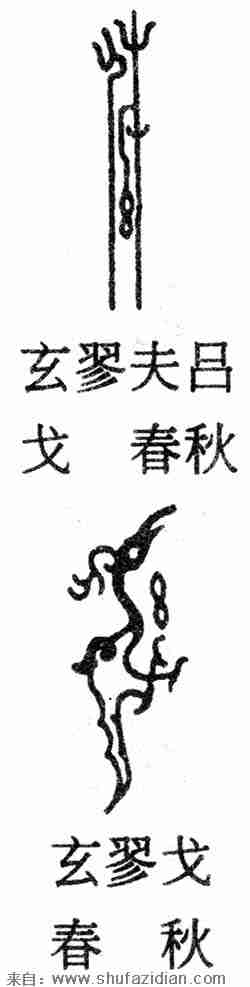 玄翏夫吕
戈　春秋
玄翏戈
春　秋
来自：www.shufazidian.com